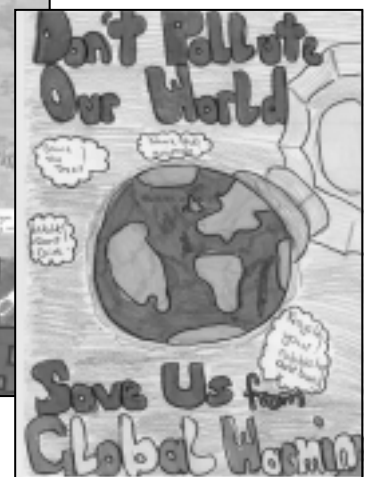 Don't Pollute
Our World
Save
the
Trees
Walk
Don't
Drive
Recycle
your
rubbish
Save Us from
Global Warmin